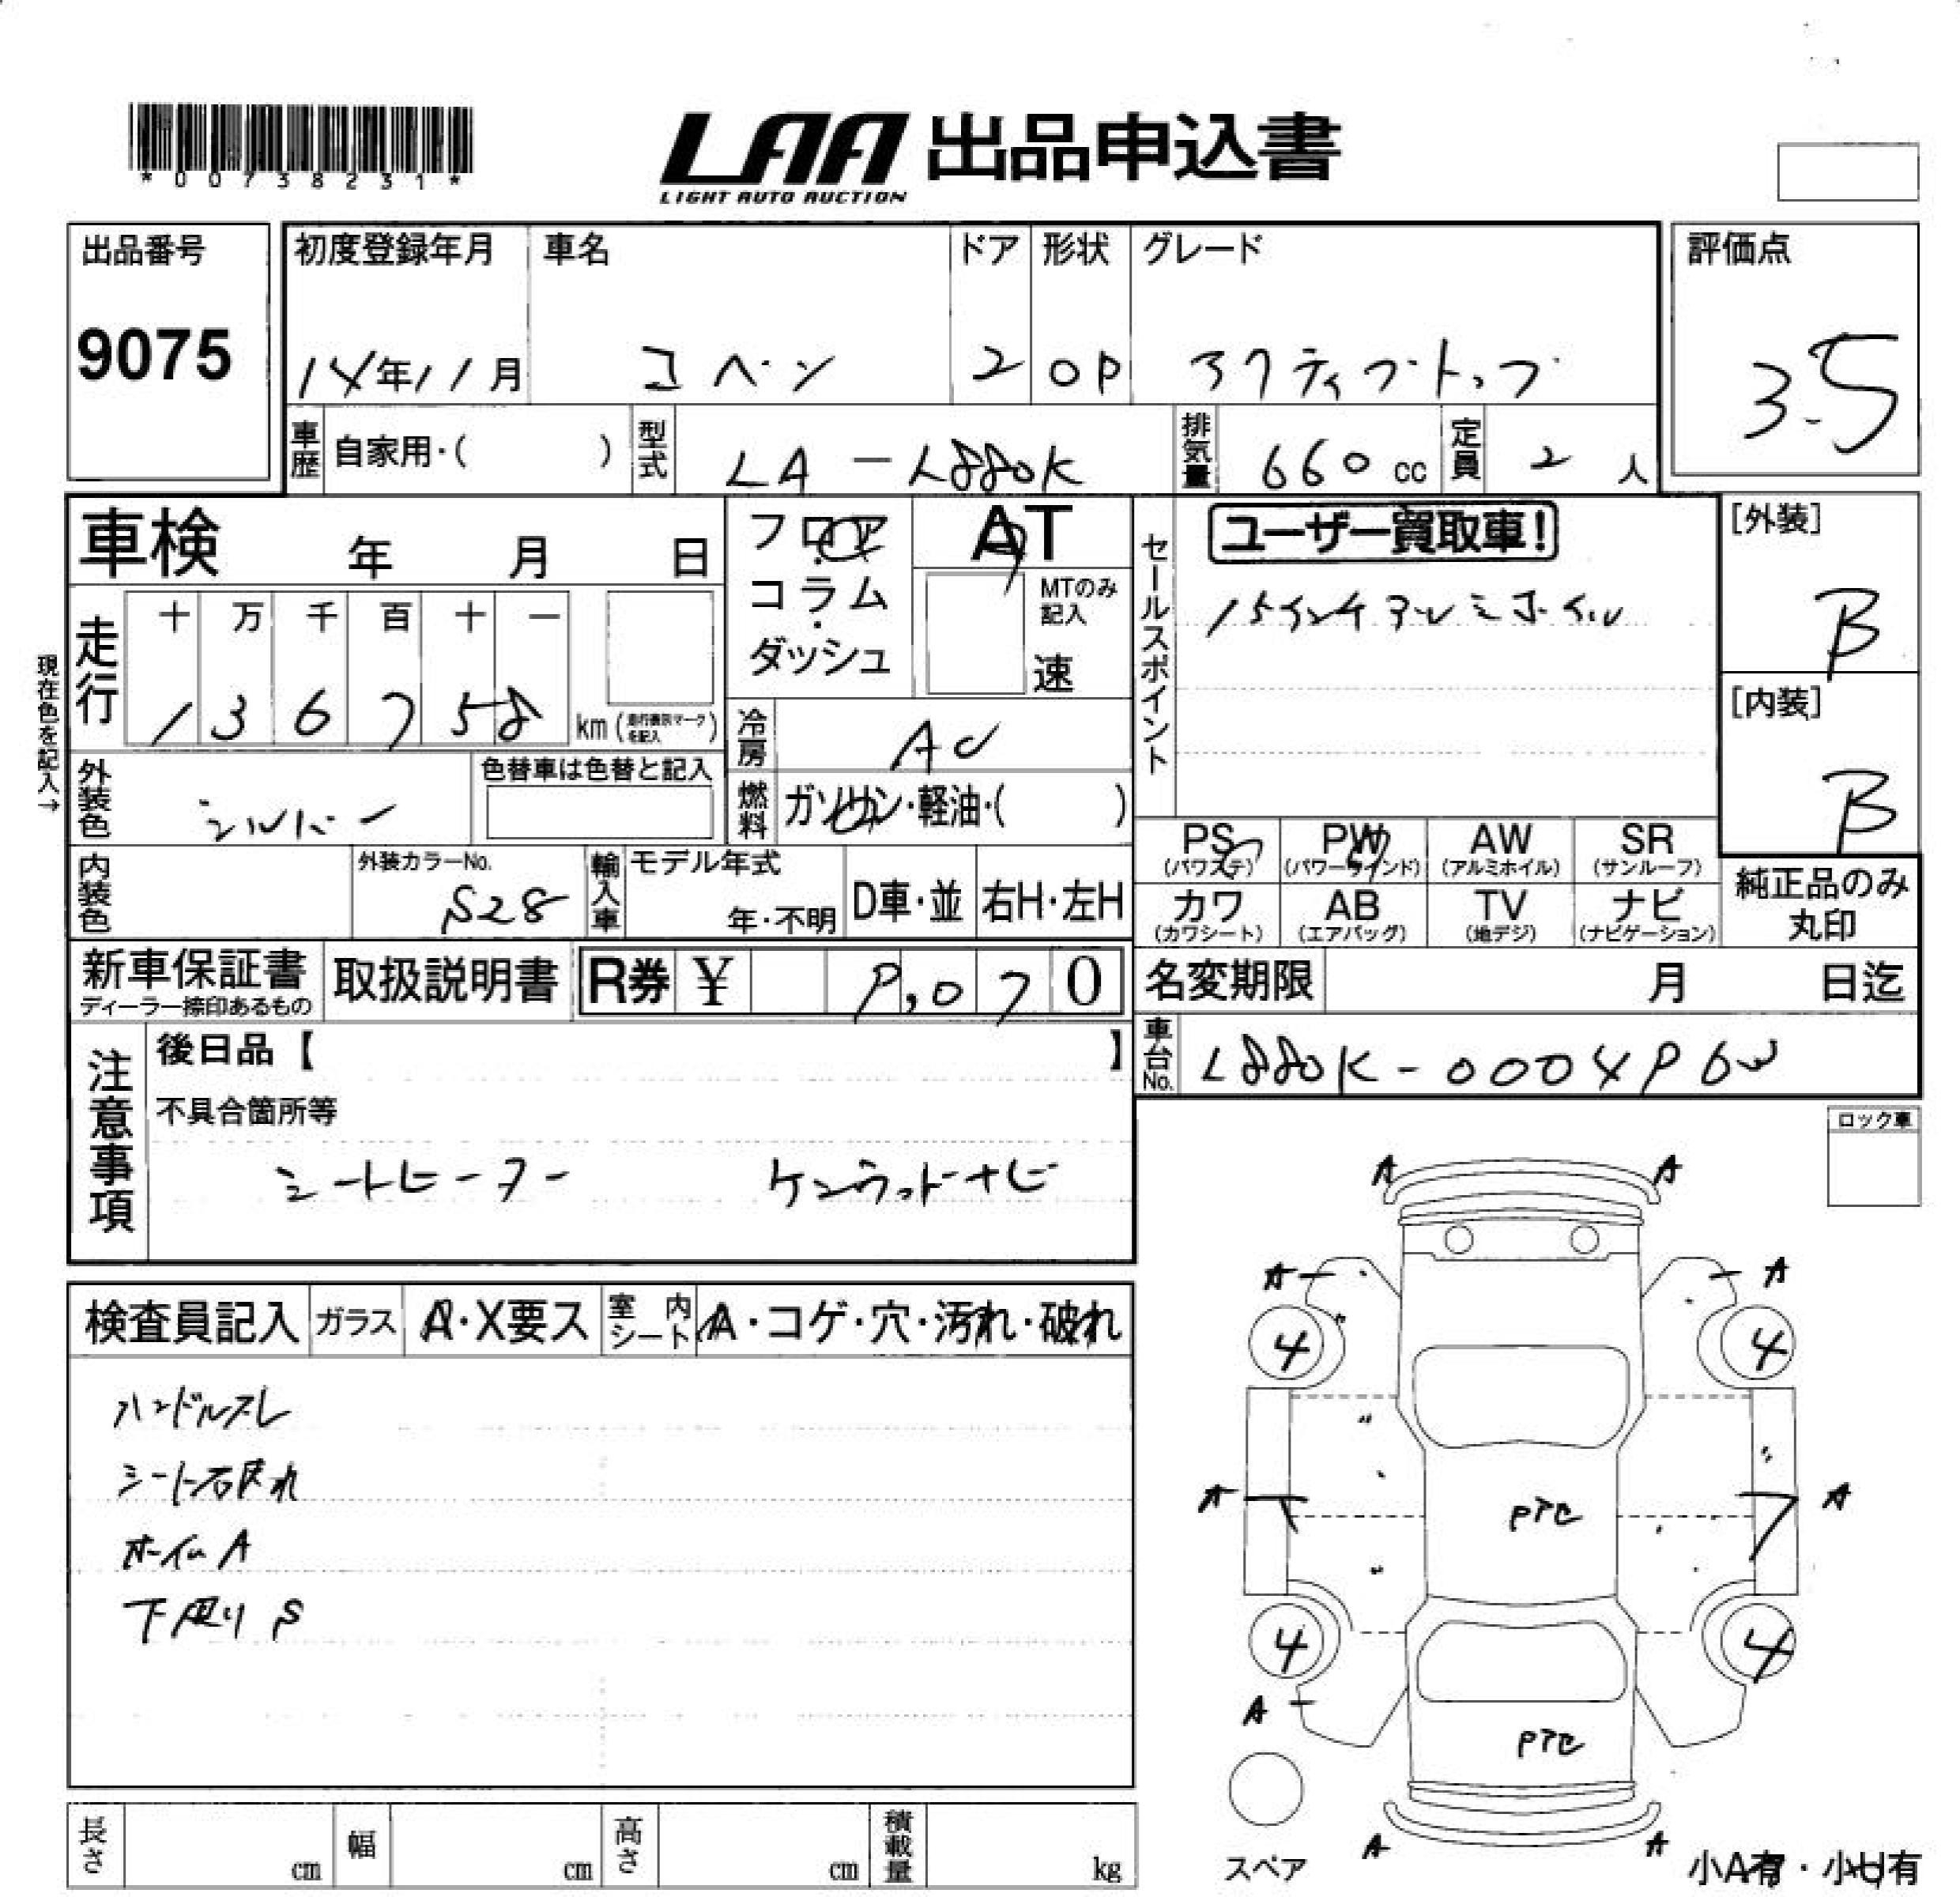 *00738231*
LAA 出品申込書
LIGHT AUTO AUCTION
出品番号 9075
初度登録年月 14年11月
車名 コペン
ドア 2
形状 OP
グレード アクティブトップ
評価点 3.5
車歴 自家用・( )
型式 LA-L880K
排気量 660 cc
定員 2 人
車検 年 月 日
フロア・コラム・ダッシュ
AT
MTのみ記入
速
セールスポイント
ユーザー買取車!
15インチアルミホイル
[外装] B
[内装] B
現在色を記入→
走行
十 万 千 百 十 一
1 3 6 7 5 8 km (走行表示マークを記入)
冷房 AC
燃料 ガソリン・軽油・( )
外装色 シルバー
色替車は色替と記入
内装色
外装カラーNo. S28
輸入車
モデル年式
年・不明
D車・並
右H・左H
PS (パワステ)
PW (パワーウインド)
AW (アルミホイル)
SR (サンルーフ)
カワ (カワシート)
AB (エアバッグ)
TV (地デジ)
ナビ (ナビゲーション)
純正品のみ丸印
新車保証書
ディーラー捺印あるもの
取扱説明書
R券 ¥ 9,070
名変期限 月 日迄
車台No. L880K-0004963
注意事項
後日品【 】
不具合箇所等
シートヒーター ケンウッドナビ
ロック車
検査員記入
ガラス A・X要ス
室内シート A・コゲ・穴・汚れ・破れ
ハンドルスレ
シート右破れ
ホイルA
下廻りS
A A
A A
4 4
A A
PTC
4 4
A
PTC
A A
スペア
小A有・小U有
長さ cm
幅 cm
高さ cm
積載量 kg